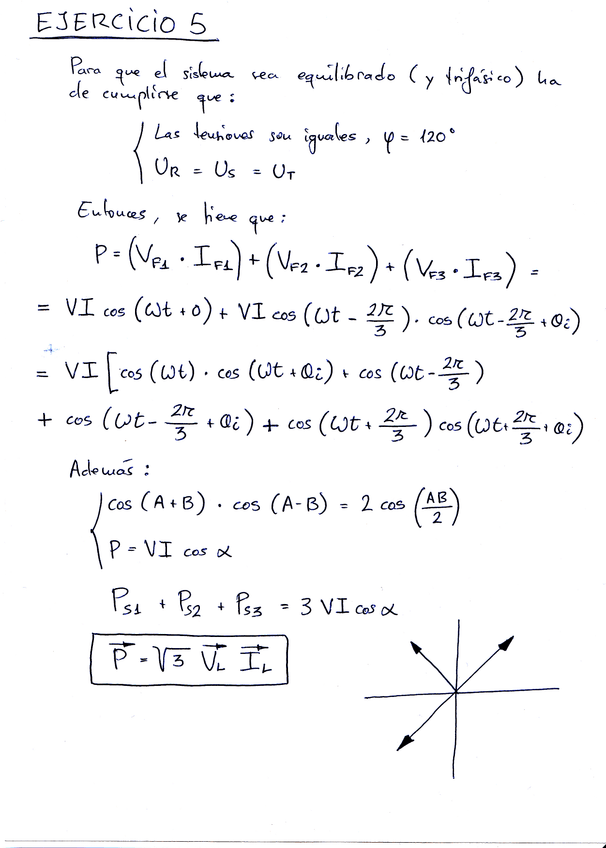 EJERCICIO 5
Para que el sistema sea equilibrado (y trifásico) ha
de cumplirse que:
Las tensiones son iguales, φ = 120°
UR = US = UT
Entonces, se tiene que:
P = (VF1 · IF1) + (VF2 · IF2) + (VF3 · IF3) =
= VI cos (ωt + 0) + VI cos (ωt - 2π/3) · cos (ωt - 2π/3 + θi)
= VI [cos (ωt) · cos (ωt + θi) + cos (ωt - 2π/3)
+ cos (ωt - 2π/3 + θi) + cos (ωt + 2π/3) cos (ωt + 2π/3 + θi)
Además:
cos (A+B) · cos (A-B) = 2 cos (AB/2)
P = VI cos α
PS1 + PS2 + PS3 = 3 VI cos α
P⃗ = √3 V⃗L I⃗L